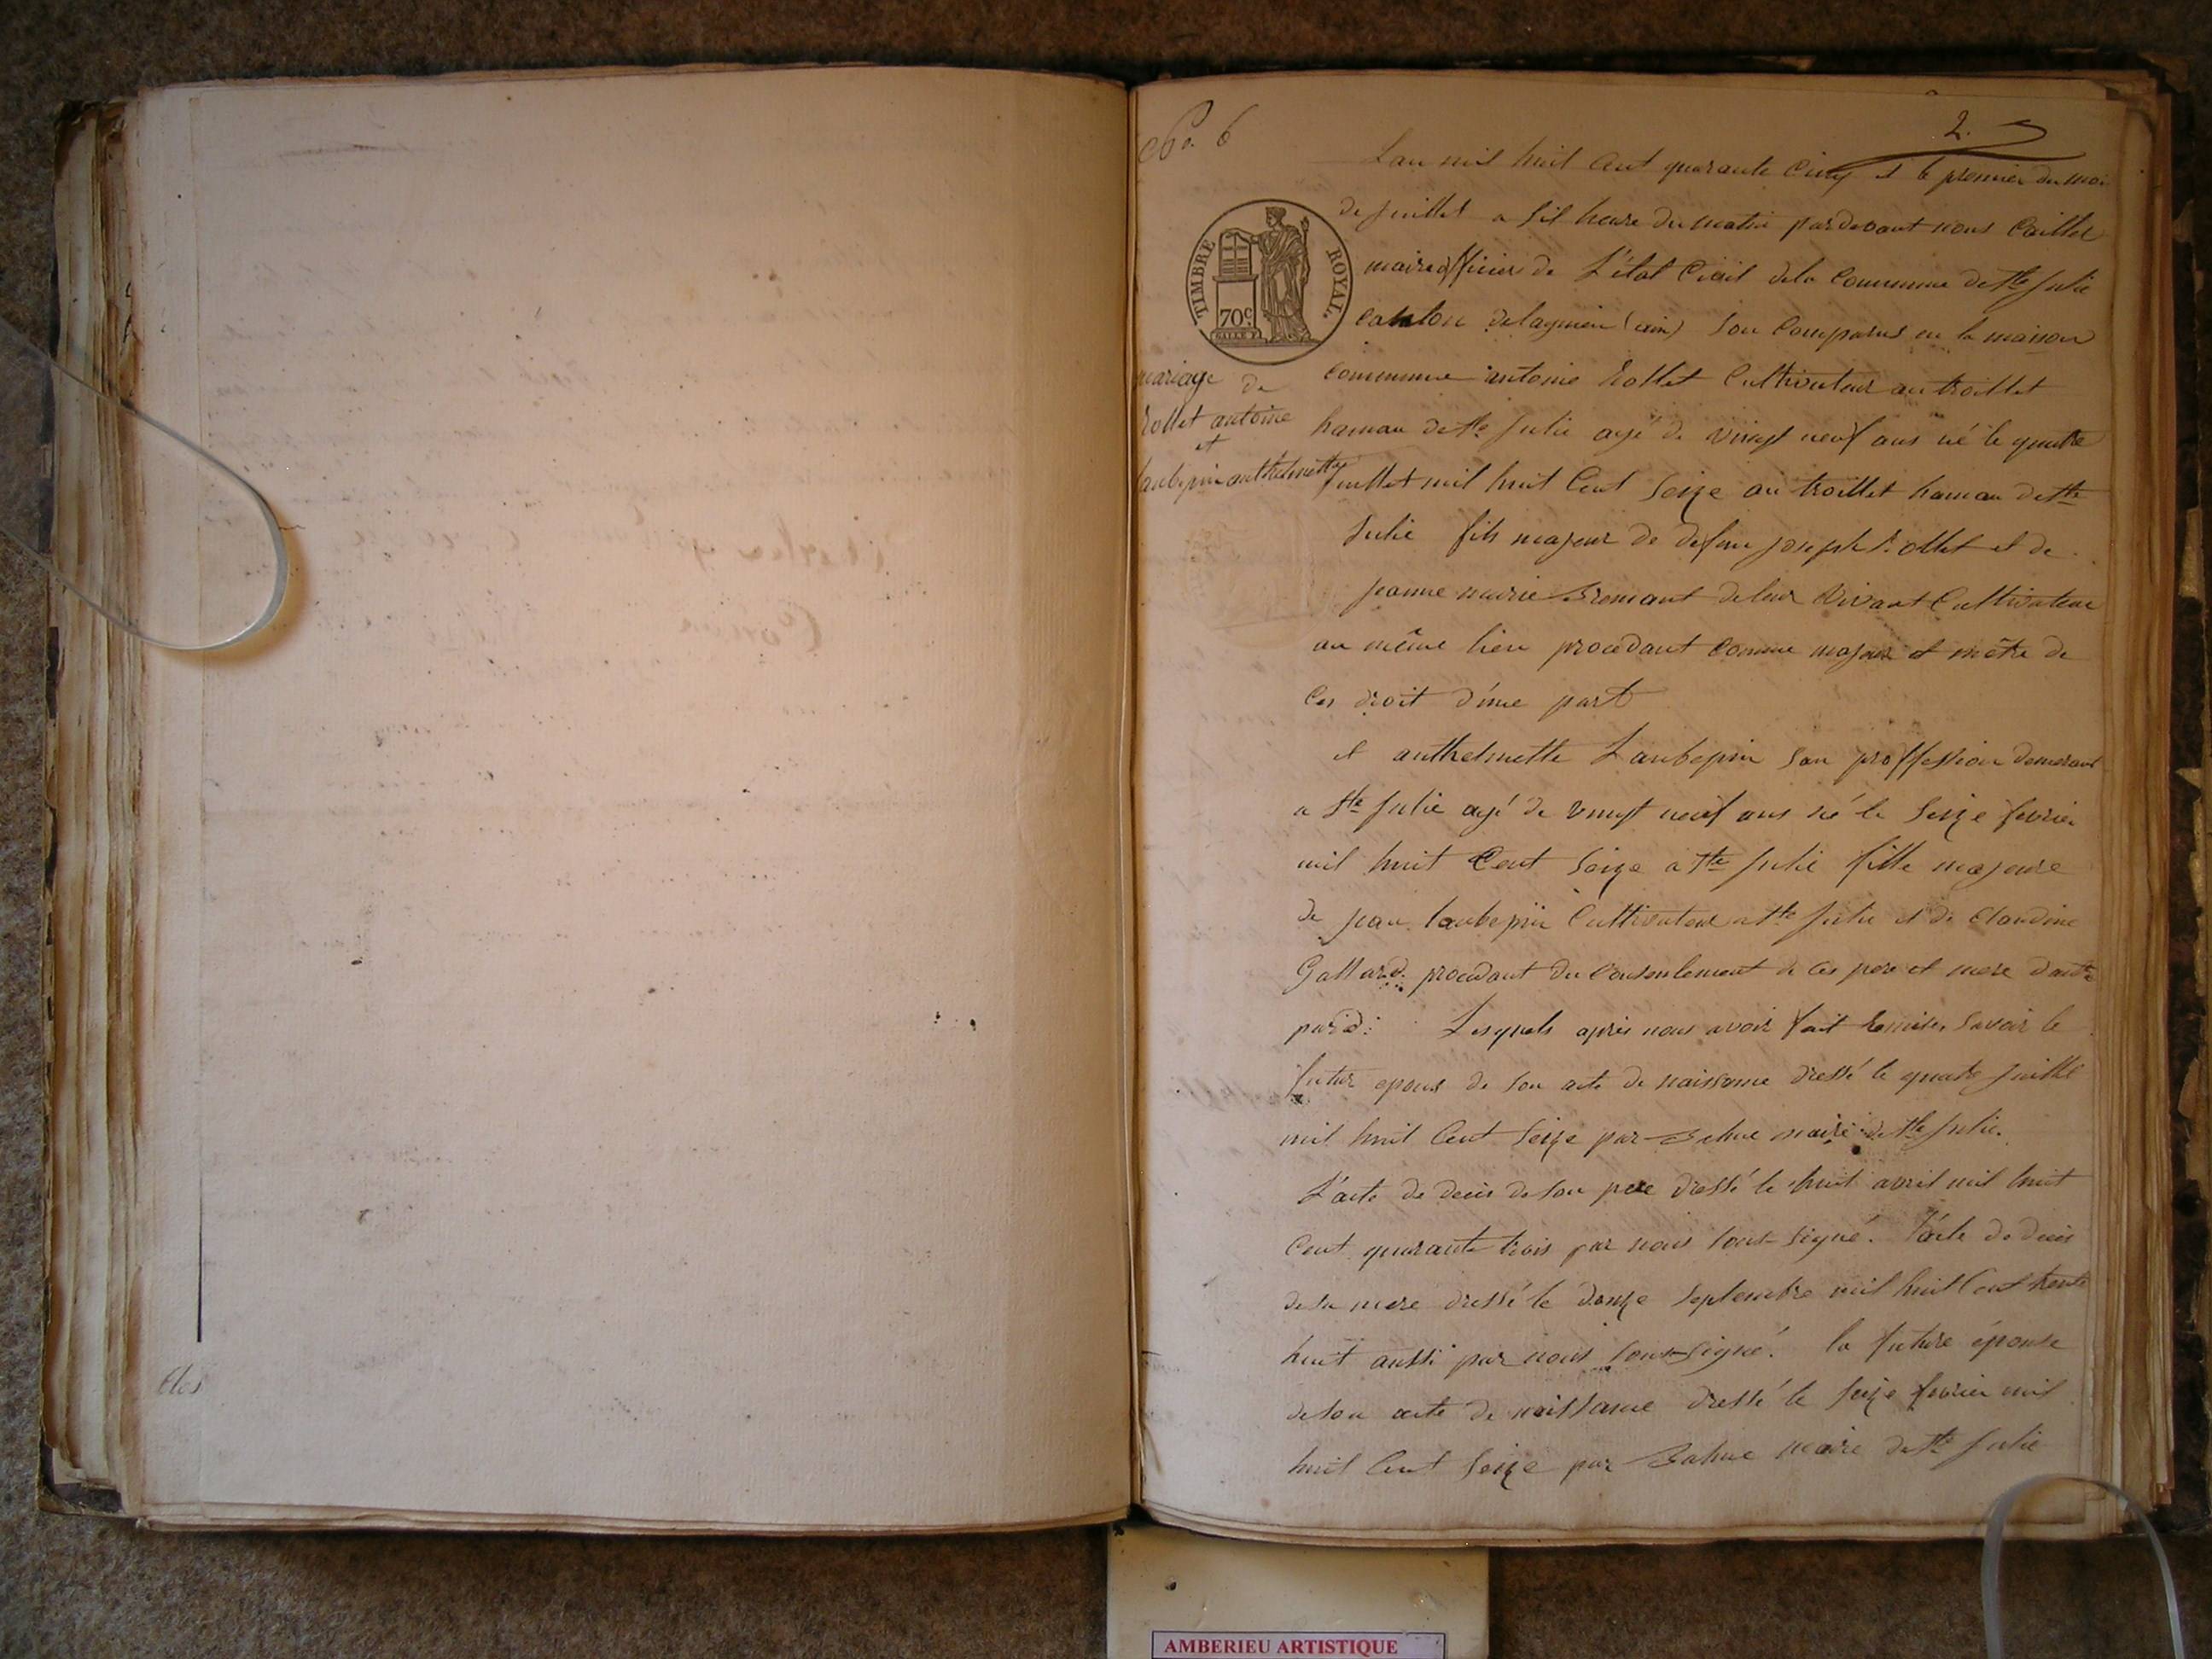 No. 6
2.
TIMBRE ROYAL.
70c
mariage de
Rollet antoine
et
Laubepin anthelmette
L'an mil huit Cent quarante Cinq et le premier du moi
de juillet a sit heure du matin pardevant nous Caillet
maire officier de L'état Civil dela Commune de Ste Julie
Canton delagnieu (ain) Son Comparus en la maison
Commune antoine Rollet Cultivateur au trollet
hamau de Ste Julie agé de vingt neuf ans né le quatre
juillet mil huit Cent Seize au trollet hamau de Ste
Julie fils majeur de defeu joseph Rollet et de
jeanne marie deleur Vivant Cultivateur
au même lieu procedant Comme majeur et mètre de
Ces droit d'une part
et anthelmette Laubepin San proffession demeurant
a Ste Julie agé de vingt neuf ans né le Seize fevrier
mil huit Cent Seize a Ste Julie fille majeure
de jean laubepin Cultivateur a Ste Julie et de Claudine
Gallard. procedant du Consentement de Ces pere et mere d'autre
part. Lesquels après nous avoir fait Remise, Savoir le
futur epoux de Son acte de naissance dressé le quatre juillet
mil huit Cent Seize par maire de Ste Julie.
L'acte de deces de Son pere dressé le huit avril mil huit
Cent quarante trois par nous Sous-Signé. l'acte de deces
desa mere dressé le douze Septembre mil huit Cent trente
huit aussi par nous Sous-Signé. la future épouse
deson acte de naissance dressé le Seize fevrier mil
huit Cent Seize par maire de Ste Julie
AMBERIEU ARTISTIQUE